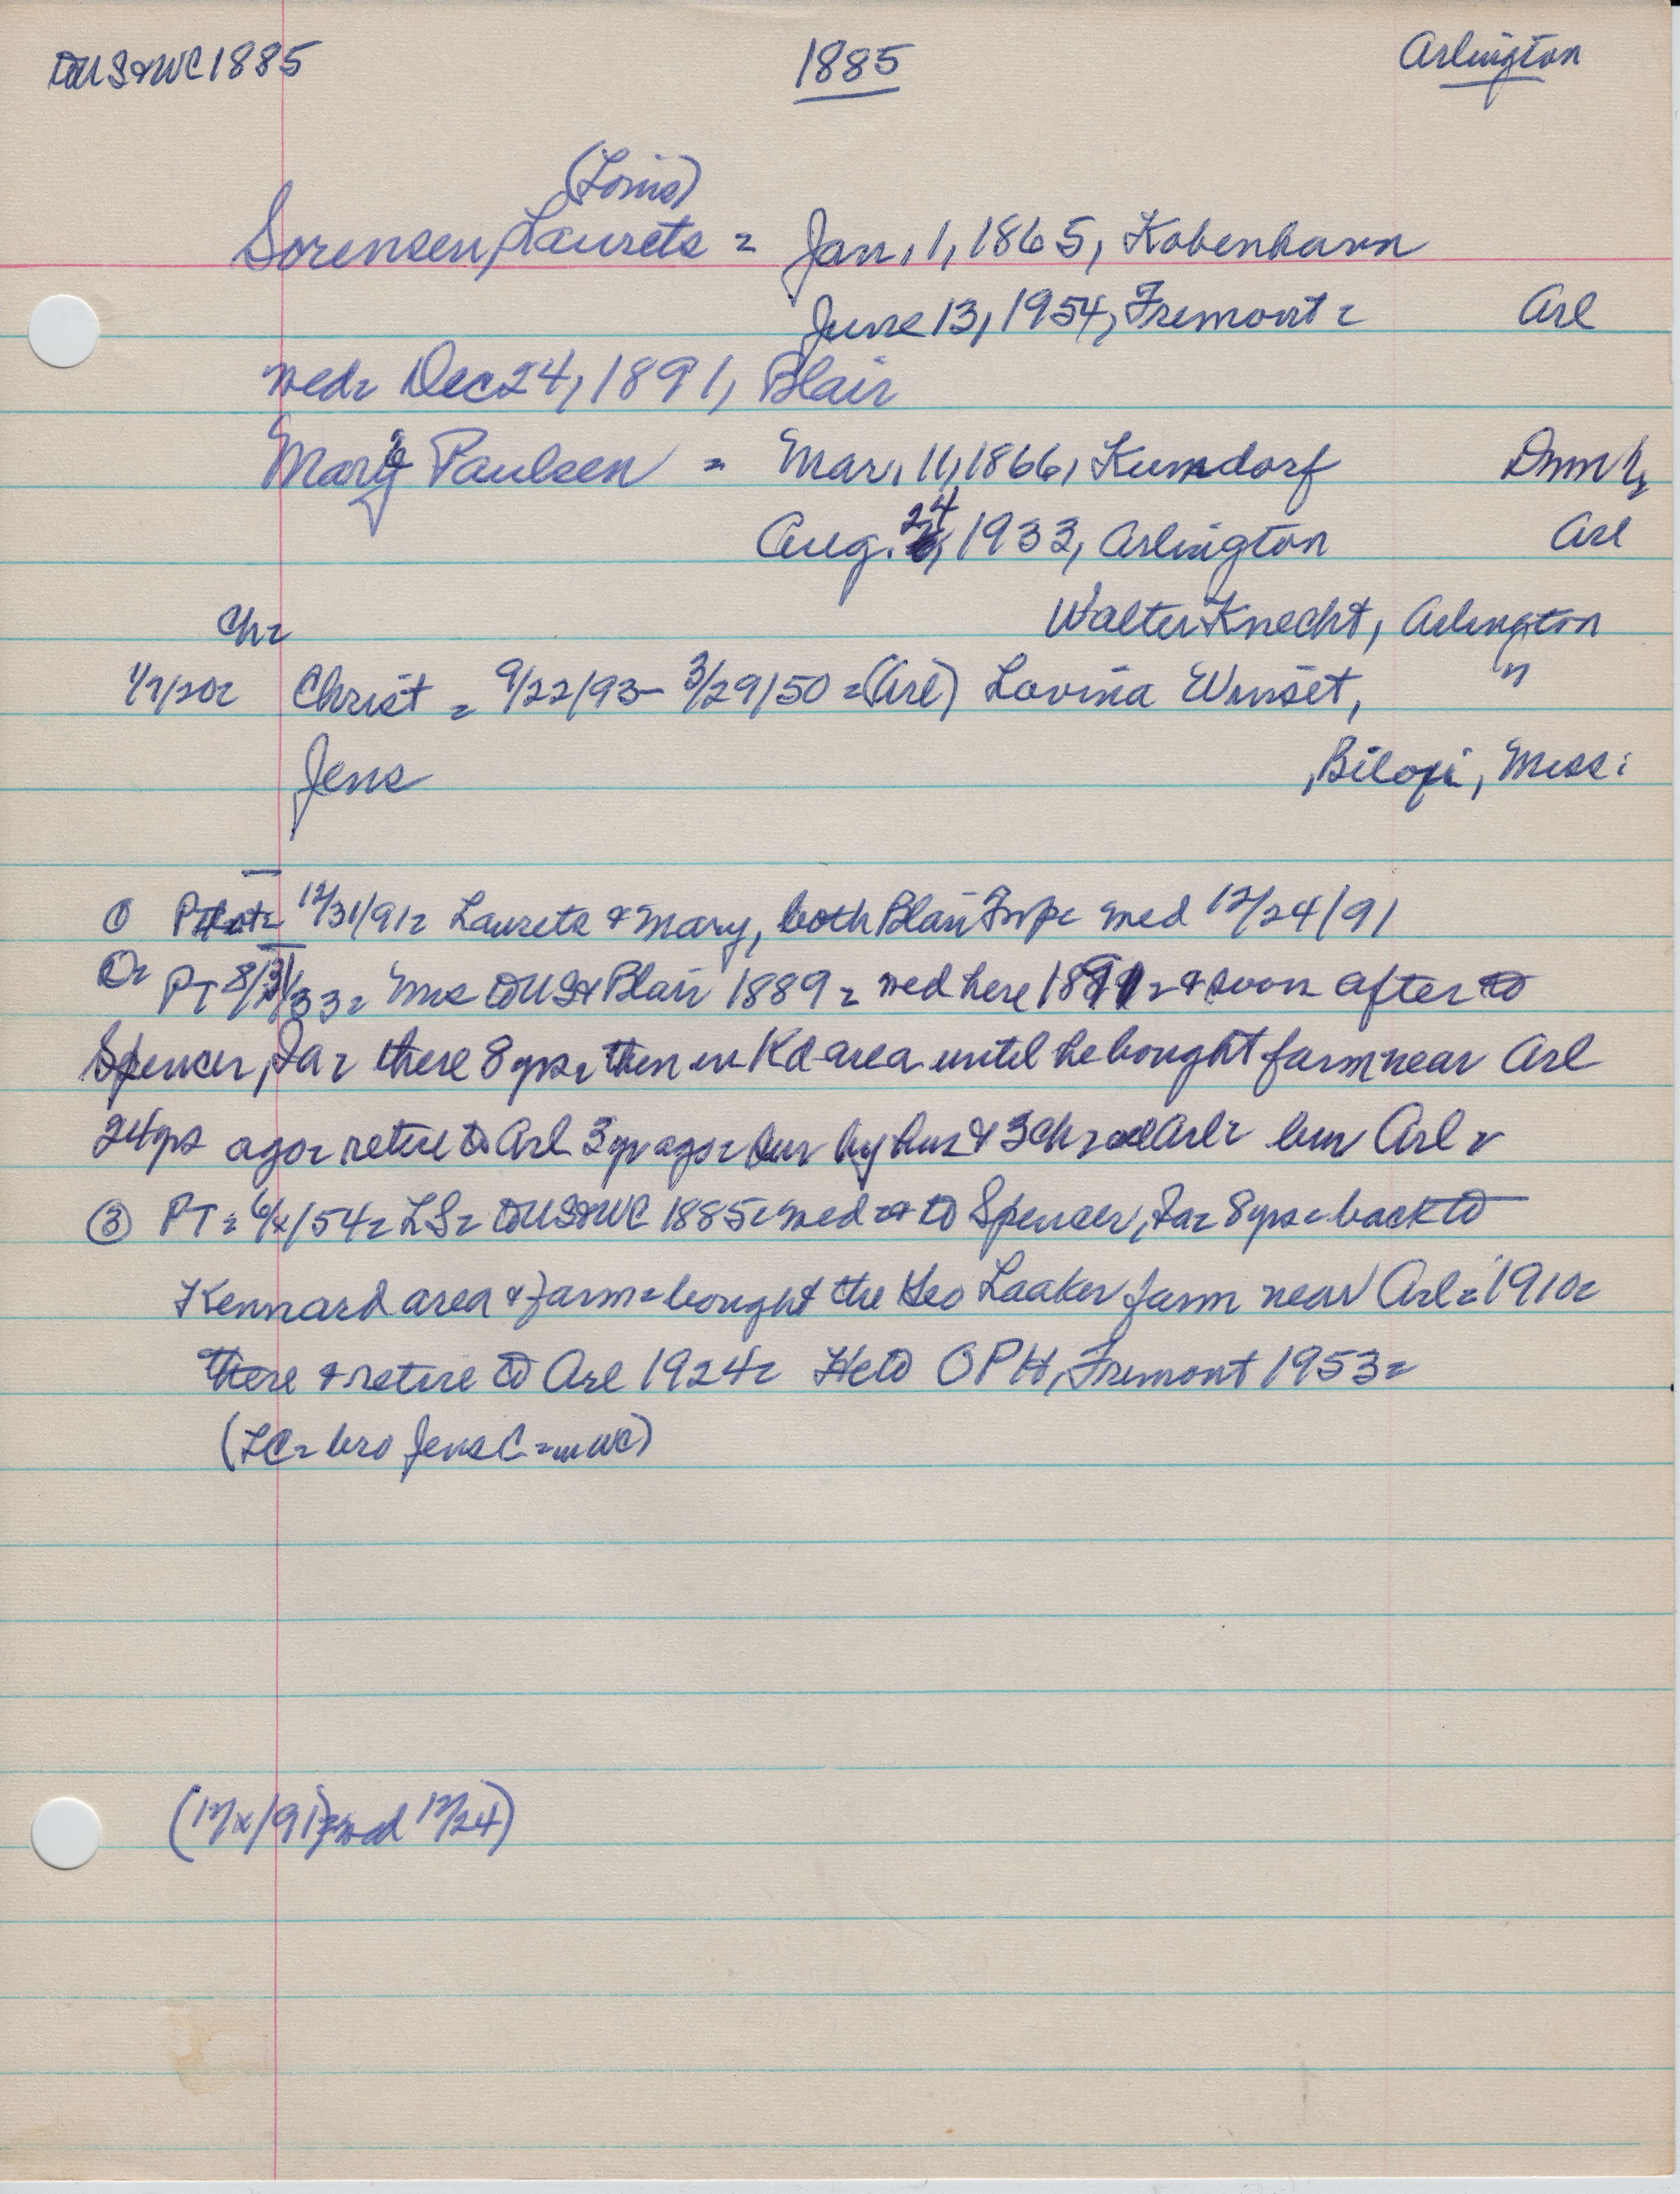 to US & WC 1885 1885 Arlington
(Louis)
Sorensen, Laurets = Jan. 1, 1865, Kobenhavn
June 13, 1954, Fremont = Arl
wed = Dec 24, 1891, Blair
Mary Paulsen = Mar. 11, 1866, Kumdorf Dnmk
Aug. 24, 1933, Arlington Arl
Ch = Walter Knecht, Arlington
Christ = 9/22/93 - 3/29/50 = (Arl) Lovina Winset, "
Jens , Biloxi, Miss.
① PT 12/31/91 = Laurets & Mary, both Blair Twp = wed 12/24/91
② = PT 8/31/33 = Mrs to US & Blair 1889 = wed here 1891 = & soon after to
Spencer, Ia = there 8 yrs = then in Kd area until he bought farm near Arl
24 yrs ago = retire to Arl 3 yr ago = sur by hus & 3 ch = all Arl = bur Arl =
③ PT = 6/x/54 = LS = to US & WC 1885 = wed = & to Spencer, Ia = 8 yrs = back to
Kennard area & farm = bought the Geo Laaker farm near Arl = 1910 =
there & retire to Arl 1924 = He to OPH, Fremont 1953 =
(LC = bro Jens C = in WC)
(12/x/91) = wed 12/24)